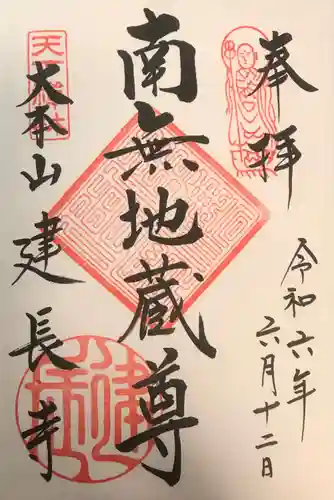 奉拝
令和六年
六月十二日
南無地蔵尊
大本山
建長寺